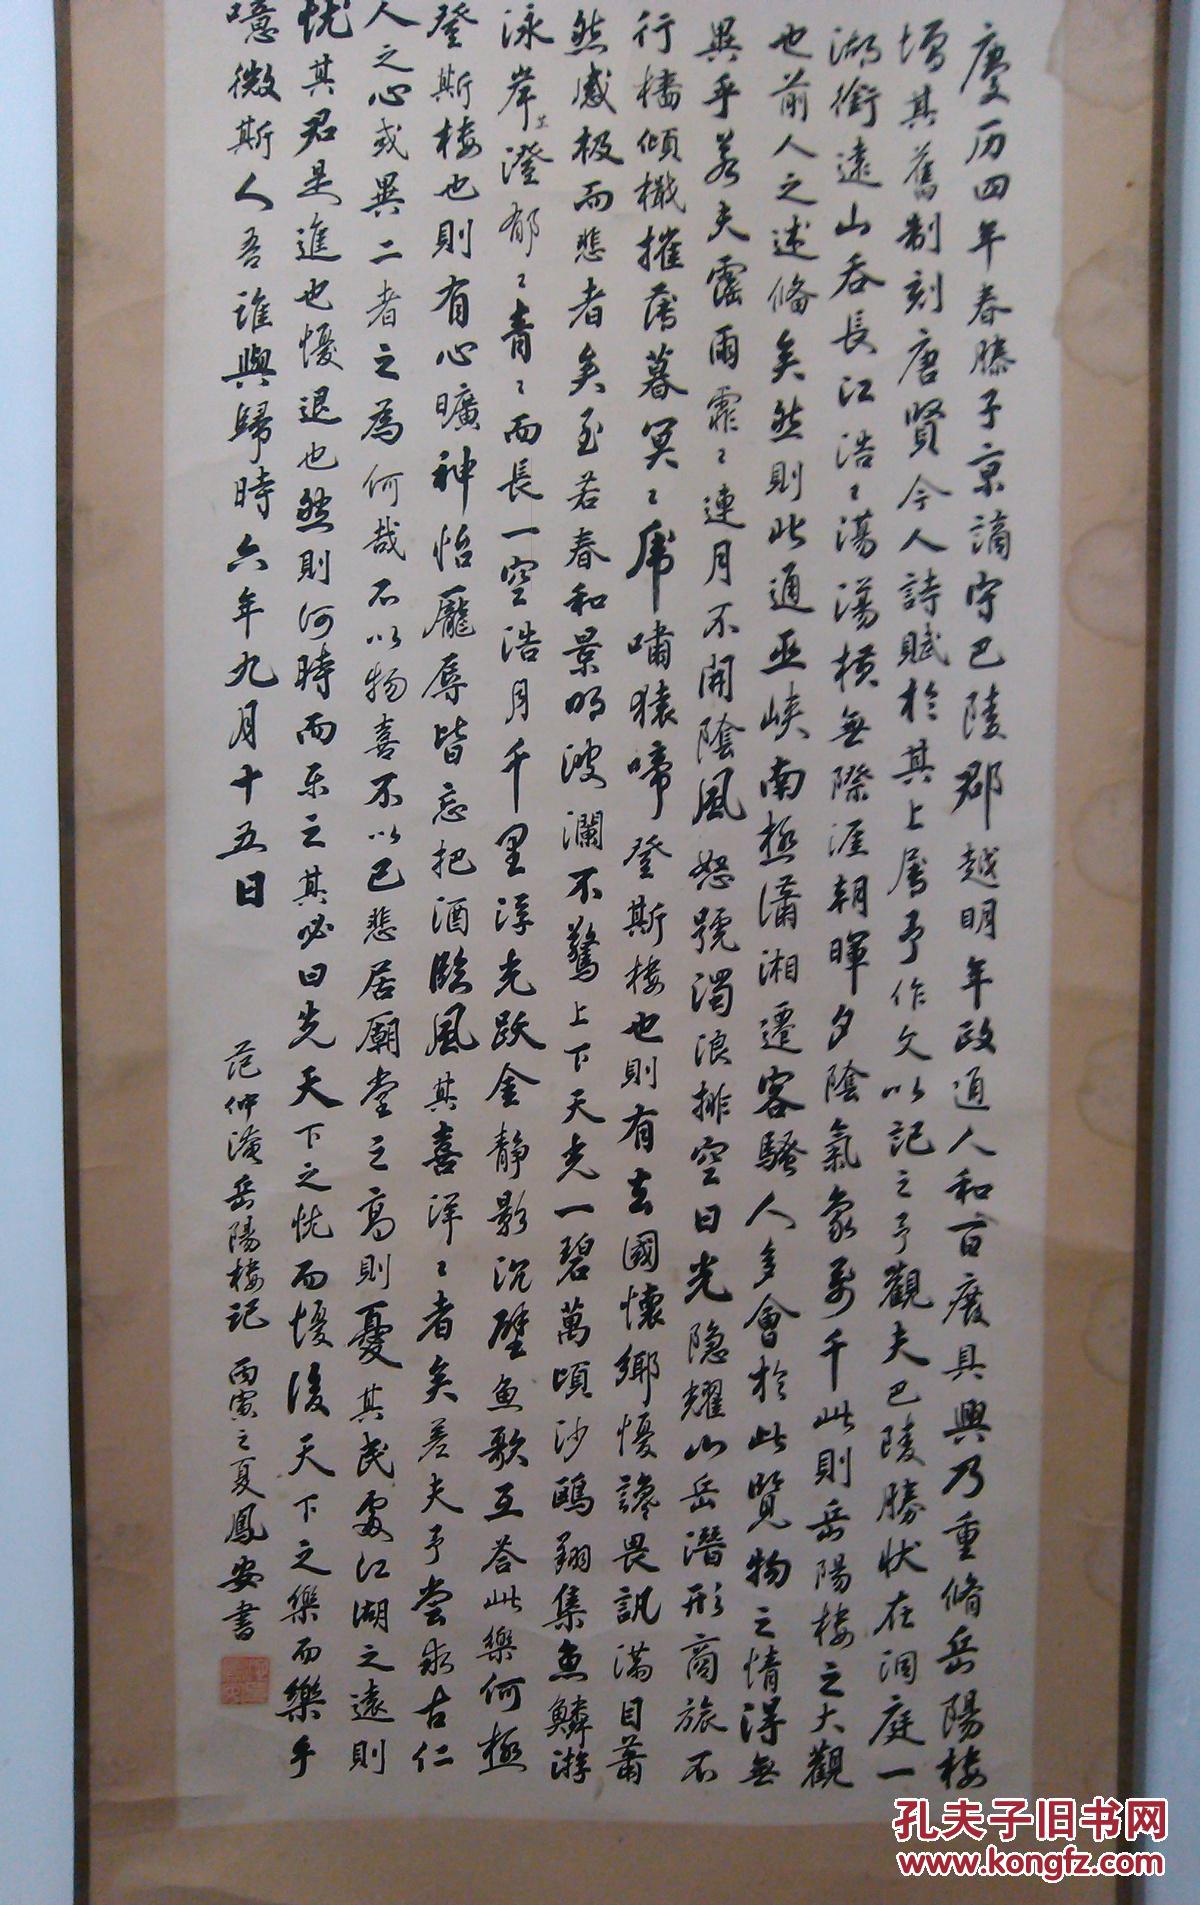 慶历四年春滕子京謫守巴陵郡越明年政通人和百廢具興乃重脩岳陽楼
增其舊制刻唐賢今人詩賦於其上屬予作文以記之予觀夫巴陵勝状在洞庭一
湖銜遠山吞長江浩〻蕩蕩横無際涯朝暉夕陰氣象萬千此則岳陽楼之大觀
也前人之述備矣然則此通巫峡南極瀟湘遷客騷人多會於此覽物之情得無
異乎若夫霪雨霏〻連月不開陰風怒號濁浪排空日光隐耀山岳潛形商旅不
行檣傾檝摧薄暮冥〻虎嘯猿啼登斯楼也則有去國懷鄉憂讒畏訊滿目蕭
然感极而悲者矣至若春和景明波瀾不驚上下天光一碧萬頃沙鷗翔集魚鱗游
泳岸芷澄郁〻青〻而長一空浩月千里浮光跃金静影沉璧魚歌互答此樂何極
登斯楼也則有心曠神怡寵辱皆忘把酒臨風其喜洋〻者矣差夫予尝求古仁
人之心或異二者之為何哉不以物喜不以己悲居廟堂之高則憂其民處江湖之遠則
忧其君是進也憂退也然則何時而乐之其必曰先天下之忧而憂後天下之樂而樂乎
噫微斯人吾誰與歸時六年九月十五日
范仲淹岳陽楼記 丙寅之夏鳳安書
孔夫子旧书网
www.kongfz.com